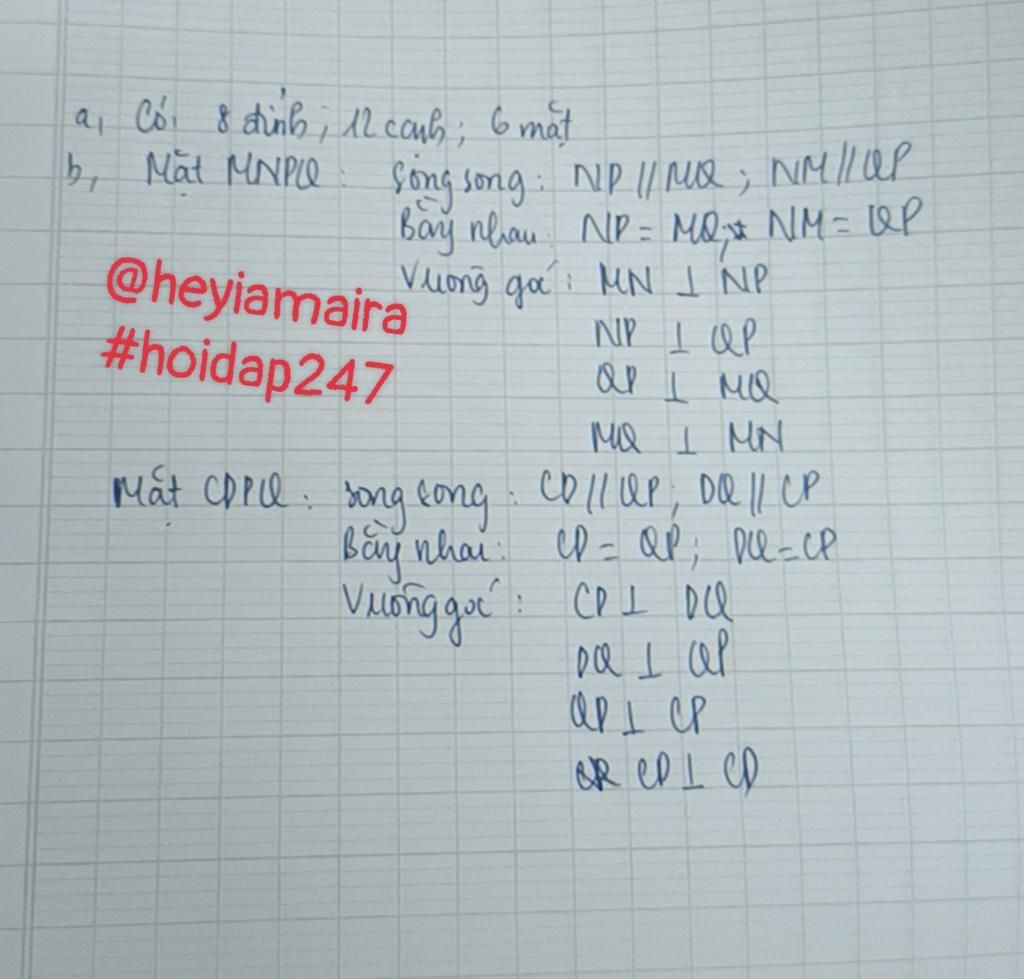 a, Có: 8 đỉnh; 12 cạnh; 6 mặt
b, Mặt MNPQ: Song song: NP // MQ; NM // QP
Bằng nhau: NP = MQ; NM = QP
Vuông góc: MN ⊥ NP
@heyiamaira
NP ⊥ QP
#hoidap247
QP ⊥ MQ
MQ ⊥ MN
Mặt CDPQ: song song: CD // QP; DQ // CP
Bằng nhau: CD = QP; DQ = CP
Vuông góc: CD ⊥ DQ
DQ ⊥ QP
QP ⊥ CP
CP ⊥ CD